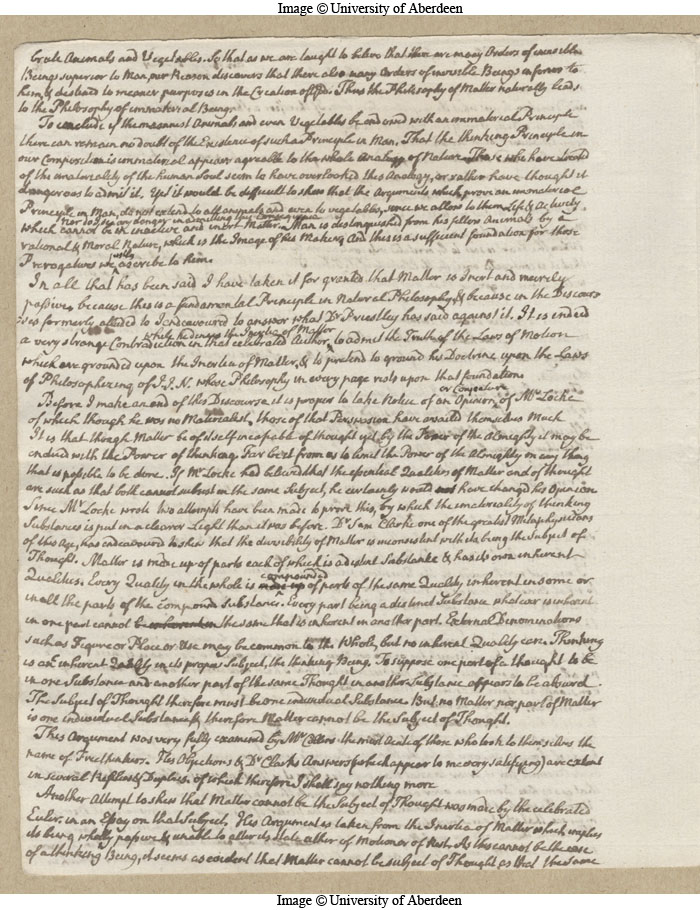 Image © University of Aberdeen
brute Animals and Vegetables. So that as we are taught to believe that there are many Orders of invisible
Beings superior to Man, our Reason discovers that there also many Orders of invisible Beings inferior to
him, & destined to meaner purposes in the Creation of God. Thus the Philosophy of Matter naturally leads
to the Philosophy of immaterial Being.
To conclude if the meannest Animals and even Vegetables be endued with an immaterial Principle
there can remain no doubt of the Existence of such a Principle in Man. That the thinking Principle in
our Composition is immaterial appears agreable to the whole Analogy of Nature. Those who have treated
of the immateriality of the human Soul seem to have overlooked this Analogy, or rather have thought it
dangerous to admit it. Yet it would be difficult to shew that the Arguments which prove an immaterial
Principle in Man, do not extend to all animals and even to vegetables, since we allow to them Life & Activity
Nor do I see any danger in admitting this Consequence
which cannot be in inactive and inert Matter. Man is distinguished from his fellow Animals by a
rational & Moral Nature, which is the Image of his Maker, And this is a sufficient foundation for those
justly
Prerogatives we ascribe to him.
In all that has been said I have taken it for granted that Matter is Inert and merely
passive, because this is a fundamental Principle in Natural Philosophy, & because in the Discourse
formerly alluded to I endeavoured to answer what Dr Priestley has said against it. It is indeed
which he denys the Inertia of Matter
a very strange Contradiction in that celebrated Author, to admit the Truth of the Laws of Motion
which are grounded upon the Inertia of Matter, & to pretend to ground his Doctrine upon the Laws
of Philosophizing of S.I.N. whose Philosophy in every page rests upon that foundation
or Conjecture
Before I make an end of this Discourse it is proper to take Notice of an Opinion of Mr Locke
of which though he was no Materialist, those of that Perswasion have availed themselves Much
It is that though Matter be of itself incapable of thought yet by the Power of the Almighty it may be
endued with the Power of thinking. Far be it from us to limit the Power of the Almighty in any thing
that is possible to be done. If Mr Locke had believed that the essential Qualities of Matter and of thought
are such as that both cannot subsist in the same Subject, he certainly would have changed his Opinion
Since Mr Locke wrote two attempts have been made to prove this, by which the immateriality of thinking
Substances is put in a clearer Light than it was before. Dr Sam Clarke one of the greatest Metaphysicians
of this Age, has endeavoured to shew that the divisibility of Matter is inconsistent with its being the Subject of
Thought. Matter is made up of parts each of which is a distinct Substance & has its own inherent
compounded
Qualities. Every Quality in the whole is made up of parts of the same Quality inherent in some or
in all the parts of the Compound Substance. Every part being a distinct Substance whatever is inherent
in one part cannot be inherent in the same that is inherent in another part. External Denominations
such as Figure or Place or Use may be common to the Whole, but no inherent Quality can. Thinking
is an inherent Quality in its proper Subject, the thinking Being. To suppose one part of a thought to be
in one Substance and another part of the same Thought in another Substance appears to be absurd
The Subject of Thought therefore must be one individual Substance. But no Matter nor part of Matter
is one individual Substance, & therefore Matter cannot be the Subject of Thought.
This Argument was very fully examined by Mr Collins the most Acute of those who took to themselves the
name of Freethinkers. His Objections & Dr Clarks Answers (which appear to me very satisfying) are extant
in several Replies & Duplies. of which therefore I shall say nothing more
Another Attempt to shew that Matter cannot be the Subject of Thought was made by the celebrated
Euler, in an Essay on that Subject, His Argument is taken from the Inertia of Matter which implies
its being wholly passive & unable to alter its State either of Motion or of Rest. As this cannot be the case
of a thinking Being, it seems as evident that Matter cannot be subject of Thought as that the same
Image © University of Aberdeen